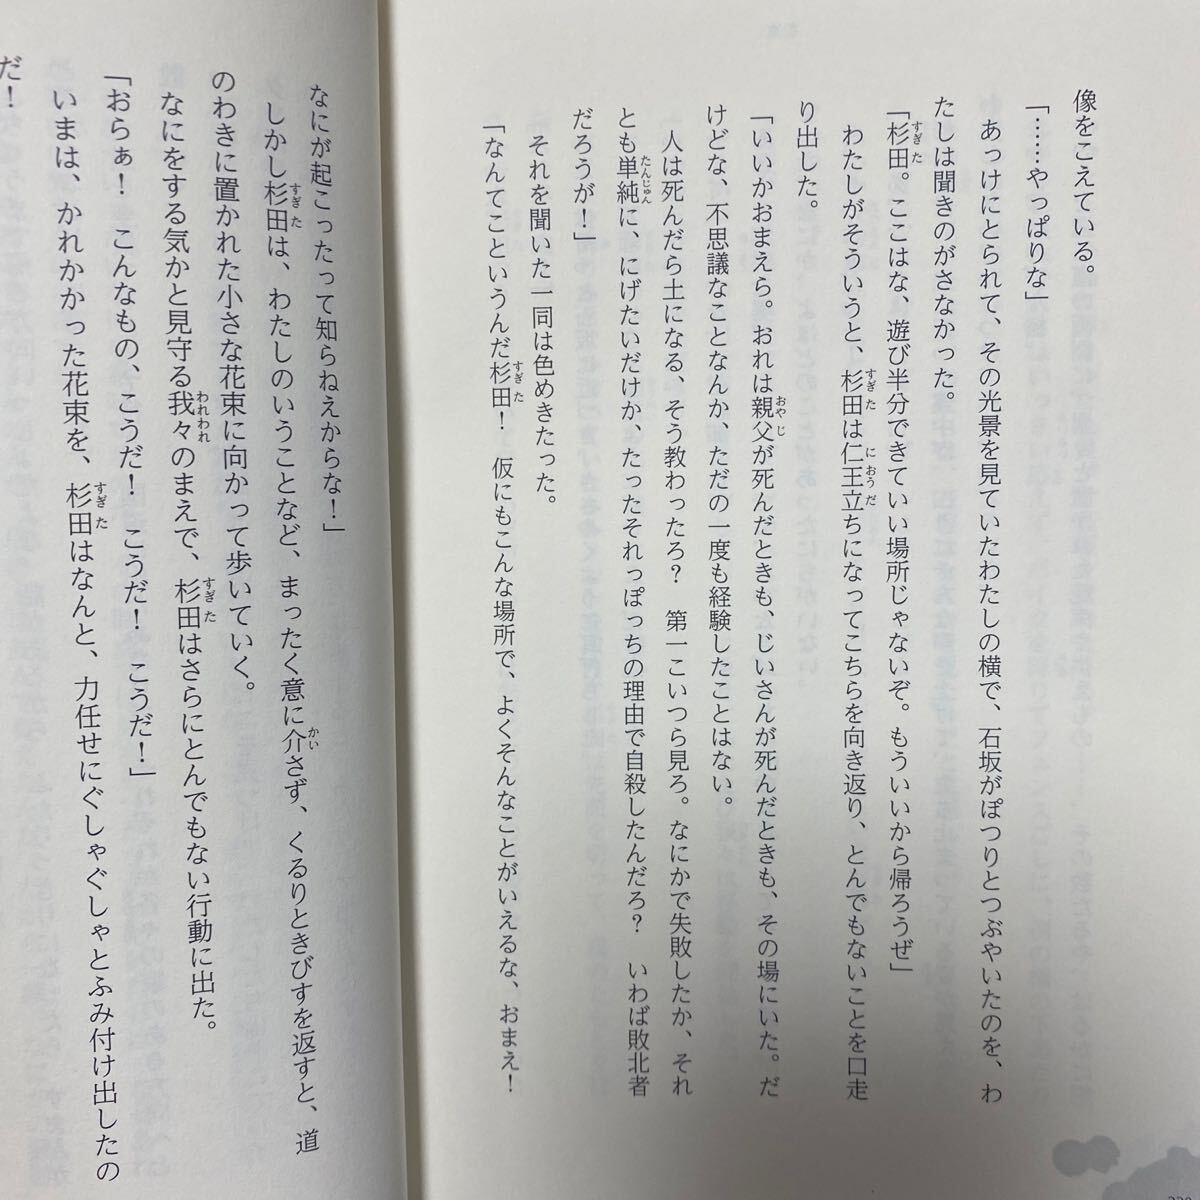 像をこえている。
「……やっぱりな」
あっけにとられて、その光景を見ていたわたしの横で、石坂がぽつりとつぶやいたのを、わ
たしは聞きのがさなかった。
「杉田。ここはな、遊び半分できていい場所じゃないぞ。もういいから帰ろうぜ」
わたしがそういうと、杉田は仁王立ちになってこちらを向き返り、とんでもないことを口走
り出した。
「いいかおまえら。おれは親父が死んだときも、じいさんが死んだときも、その場にいた。だ
けどな、不思議なことなんか、ただの一度も経験したことはない。
人は死んだら土になる、そう教わったろ？　第一こいつら見ろ。なにかで失敗したか、それ
とも単純に、にげたいだけか、たったそれっぽっちの理由で自殺したんだろ？　いわば敗北者
だろうが！」
それを聞いた一同は色めきたった。
「なんてこというんだ杉田！　仮にもこんな場所で、よくそんなことがいえるな、おまえ！
なにが起こったって知らねえからな！」
しかし杉田は、わたしのいうことなど、まったく意に介さず、くるりときびすを返すと、道
のわきに置かれた小さな花束に向かって歩いていく。
なにをする気かと見守る我々のまえで、杉田はさらにとんでもない行動に出た。
「おらぁ！　こんなもの、こうだ！　こうだ！　こうだ！」
いまは、かれかかった花束を、杉田はなんと、力任せにぐしゃぐしゃとふみ付け出したの
だ！